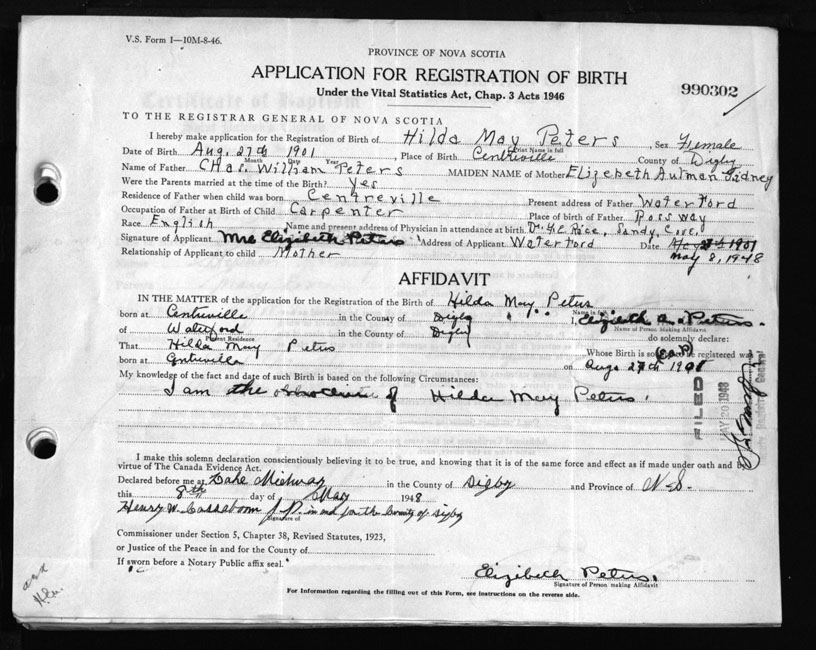 V.S. Form 1—10M-8-46.
PROVINCE OF NOVA SCOTIA
APPLICATION FOR REGISTRATION OF BIRTH
990302
Under the Vital Statistics Act, Chap. 3 Acts 1946
TO THE REGISTRAR GENERAL OF NOVA SCOTIA
I hereby make application for the Registration of Birth of Hilda May Peters Sex Female
Print Name in full
Date of Birth Aug. 27th 1901 Place of Birth Centreville County of Digby
Month Day Year
Name of Father CHas. William Peters MAIDEN NAME of Mother Elizebeth Autman Sidney
Were the Parents married at the time of the Birth? Yes
Residence of Father when child was born Centreville Present address of Father Waterford
Occupation of Father at Birth of Child Carpenter Place of birth of Father Rossway
Race English Name and present address of Physician in attendance at birth Dr. Rice, Sandy Cove.
Signature of Applicant Mrs Elizibeth Peters Address of Applicant Waterford Date
May 8, 1948
Relationship of Applicant to child Mother
AFFIDAVIT
IN THE MATTER of the application for the Registration of the Birth of Hilda May Peters
Name in full
born at Centreville in the County of Digby I, Elizibeth Peters.
Name of Person Making Affidavit
of Waterford in the County of Digby do solemnly declare:
Present Residence
That Hilda May Peters Whose Birth is so to be registered was
born at Centreville on Aug. 27th 1901
My knowledge of the fact and date of such Birth is based on the following Circumstances:
I am the of Hilda May Peters.
FILED
MAY 20 1948
I make this solemn declaration conscientiously believing it to be true, and knowing that it is of the same force and effect as if made under oath and by
virtue of The Canada Evidence Act.
Declared before me at Lake Midway in the County of Digby and Province of N.S.
this 8th day of May 1948
Henry W. Cossaboom J.P. in and for the County of Digby
Signature of
Commissioner under Section 5, Chapter 38, Revised Statutes, 1923,
or Justice of the Peace in and for the County of
If sworn before a Notary Public affix seal.
Elizibeth Peters.
Signature of Person making Affidavit
For Information regarding the filling out of this Form, see instructions on the reverse side.